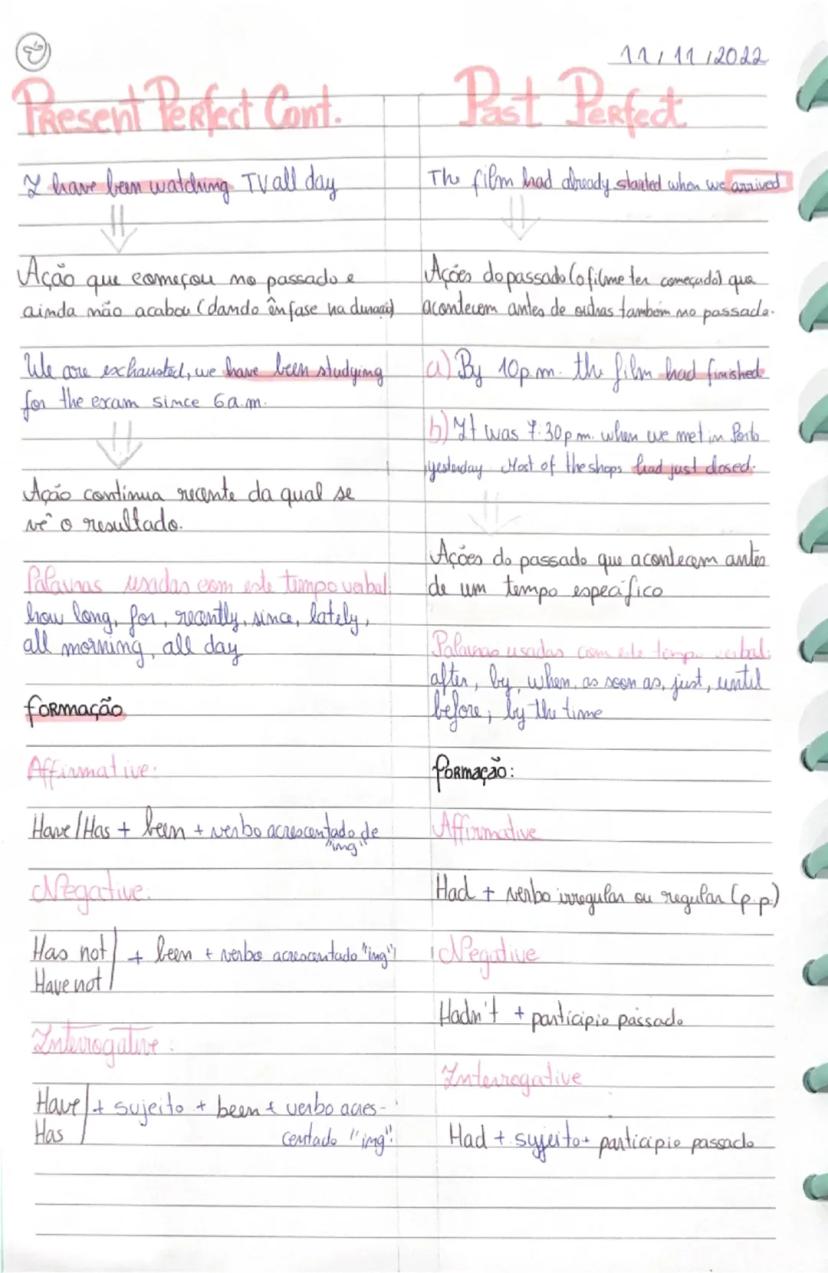 11/11/2022
Present Perfect Cont.
I have been watching TV all day
Ação que começou no passado e
ainda não acabou (dando ênfase na duração)
We are exhausted, we have been studying
for the exam since 6 a.m.
Ação continua recente da qual se
vê o resultado.
Palavras usadas com este tempo verbal:
how long, for, recently, since, lately,
all morning, all day
formação
Affirmative:
Have/Has + been + verbo acrescentado de
"ing"
Negative:
Has not + been + verbo acrescentado "ing"
Have not
Interrogative:
Have + sujeito + been + verbo acres-
Has centado "ing".
Past Perfect
The film had already started when we arrived
Ações do passado (o filme ter começado) que
acontecem antes de outras também no passado.
a) By 10 p.m. the film had finished
b) It was 7.30 p.m. when we met in Porto
yesterday. Most of the shops had just closed.
Ações do passado que acontecem antes
de um tempo específico
Palavras usadas com este tempo verbal:
after, by, when, as soon as, just, until
before, by the time
formação:
Affirmative
Had + verbo irregular ou regular (p.p.)
Negative
Hadn't + particípio passado
Interrogative
Had + sujeito + particípio passado